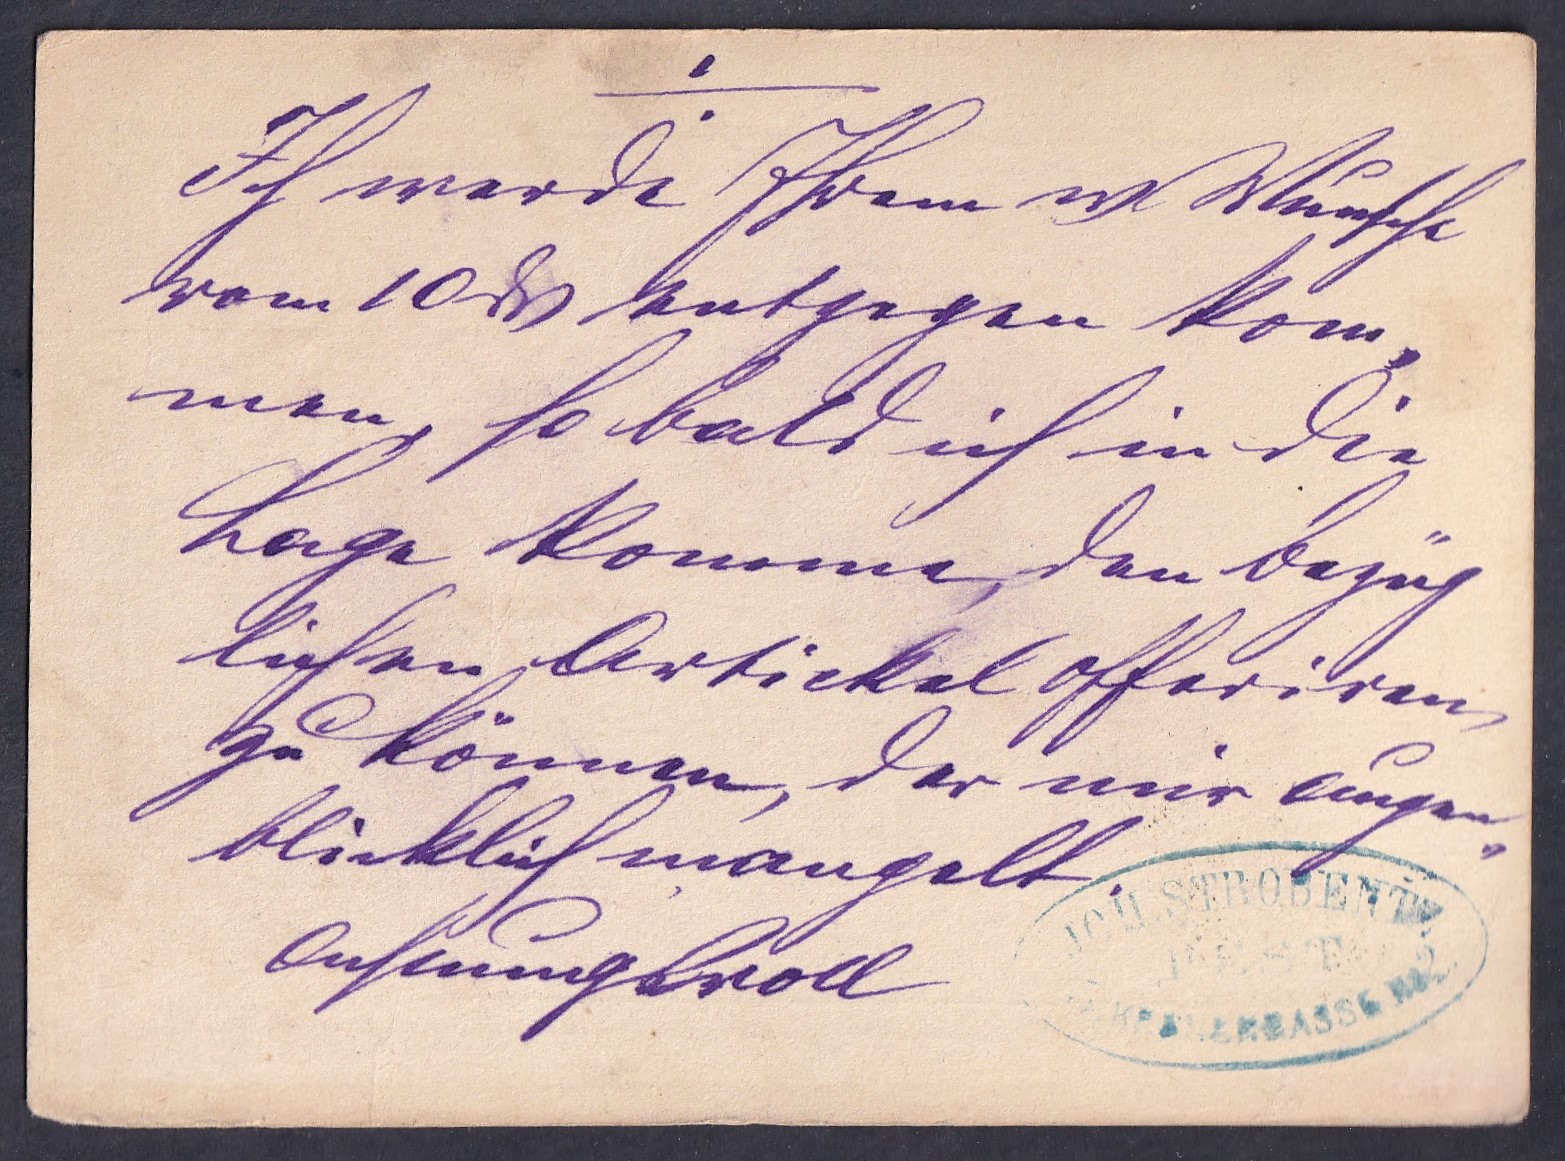 Ich werde Ihrem w Wunsche
vom 10 ds entgegen kom,
men, so bald ich in die
Lage komme, den bezüg
lichen Artickel offeriren,
zu können, der mir augen„
blicklich mangelt.
Achtungsvoll
JOH. STROBENTZ
PEST